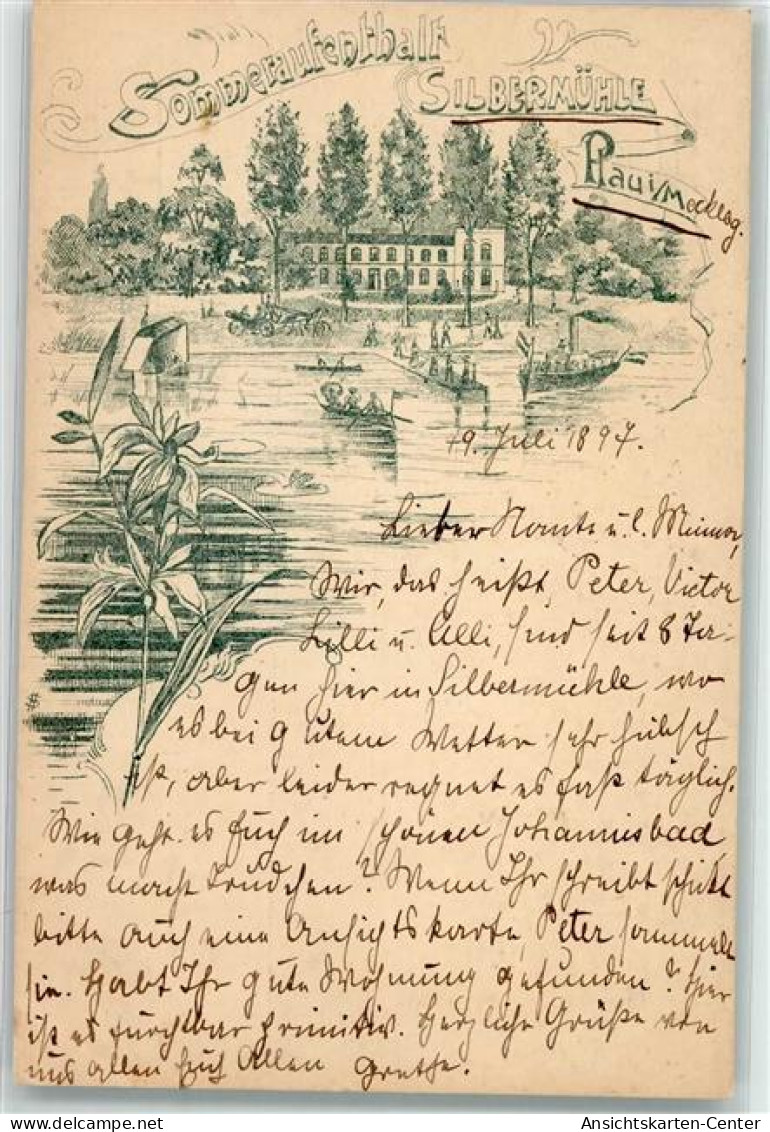 Sommeraufenthalt
SILBERMÜHLE
Plau i/Mecklbg.
19. Juli 1897.
Lieber Nante u. l. Minna,
Wir, das heißt, Peter, Victor
Lilli u. Elli, sind seit 8 Ta-
gen hier in Silbermühle, wo
es bei gutem Wetter sehr hübsch
ist, aber leider regnet es fast täglich.
Wie geht es Euch im schönen Johannisbad
was macht Trudchen? Wenn Ihr schreibt schickt
bitte auch eine Ansichtskarte, Peter sammelt
sie. Habt Ihr gute Wohnung gefunden? Hier
ist es furchtbar primitiv. Herzliche Grüße von
uns allen Euch Allen Grethe.
Ansichtskarten-Center